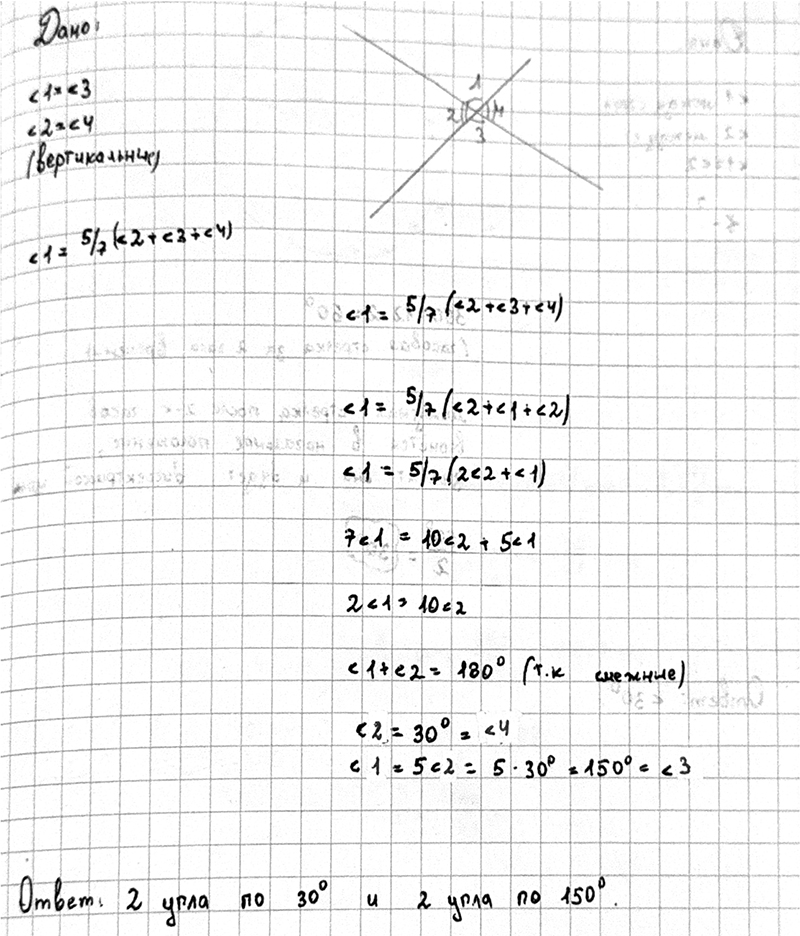 Дано:
<1=<3
<2=<4
(вертикальные)
<1= 5/7(<2+<3+<4)
1
2 4
3
<1= 5/7(<2+<3+<4)
<1= 5/7(<2+<1+<2)
<1= 5/7(2<2+<1)
7<1 = 10<2 + 5<1
2<1= 10<2
<1+<2= 180° (т.к смежные)
<2= 30° = <4
<1 = 5<2 = 5·30° =150° = <3
Ответ: 2 угла по 30° и 2 угла по 150°.